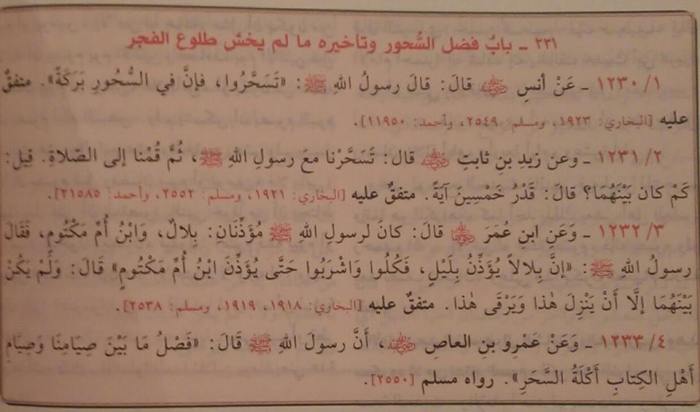 ٢٣١ ـ بابُ فضل السُّحور وتأخيره ما لم يخش طلوع الفجر
١/ ١٢٣٠ ـ عَنْ أنسٍ رضي الله عنه قالَ: قالَ رسولُ اللهِ ﷺ: «تَسَحَّرُوا، فإنَّ في السُّحورِ بَرَكَةً». متفقٌ
عليه [البخاري: ١٩٢٣، ومسلم: ٢٥٤٩، وأحمد: ١١٩٥٠].
٢/ ١٢٣١ ـ وعن زيدِ بنِ ثابتٍ رضي الله عنه قال: تَسَحَّرْنا معَ رسولِ اللهِ ﷺ، ثُمَّ قُمْنا إلى الصَّلاةِ. قيل:
كَمْ كان بَيْنَهُمَا؟ قالَ: قَدْرُ خَمْسِينَ آيَةً. متفقٌ عليه [البخاري: ١٩٢١، ومسلم: ٢٥٥٢، وأحمد: ٢١٥٨٥].
٣/ ١٢٣٢ ـ وَعَنِ ابنِ عُمَرَ رضي الله عنه قَالَ: كانَ لرسولِ اللهِ ﷺ مُؤَذِّنَانِ: بِلالٌ، وَابْنُ أُمِّ مَكْتُومٍ، فَقَالَ
رسولُ اللهِ ﷺ: «إنَّ بِلالاً يُؤَذِّنُ بِلَيْلٍ، فَكُلُوا وَاشْرَبُوا حَتَّى يُؤَذِّنَ ابْنُ أُمِّ مَكْتُومٍ» قَالَ: وَلَمْ يَكُنْ
بَيْنَهُمَا إلَّا أَنْ يَنْزِلَ هٰذا وَيَرْقَى هٰذا. متفقٌ عليه [البخاري: ١٩١٨، ١٩١٩، ومسلم: ٢٥٣٨].
٤/ ١٢٣٣ ـ وَعَنْ عَمْرِو بنِ العاصِ رضي الله عنه، أَنَّ رسولَ اللهِ ﷺ قَالَ: «فَصْلُ مَا بَيْنَ صِيَامِنَا وَصِيَامِ
أَهْلِ الكِتَابِ أَكْلَةُ السَّحَرِ». رواه مسلم [٢٥٥٠].